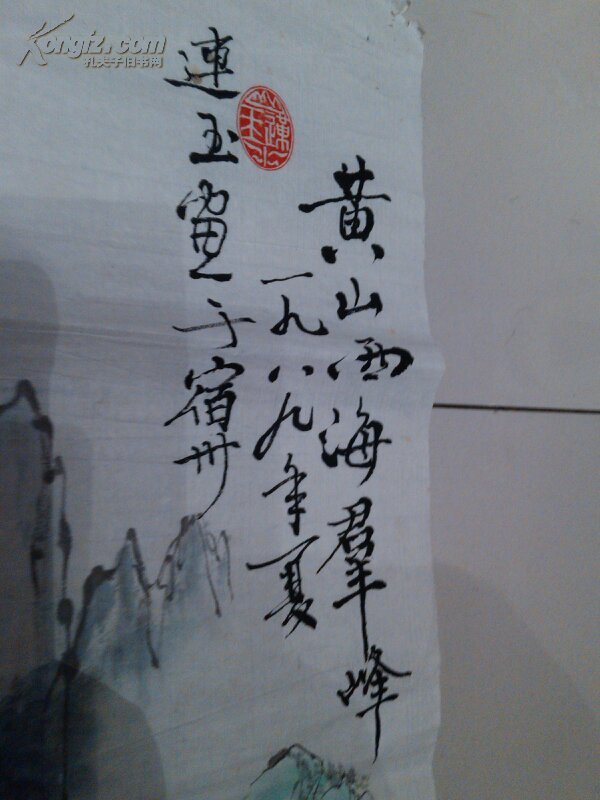 黄山西海羣峰
一九八九年夏
連玉畫于宿州
Kongfz.com
孔夫子旧书网